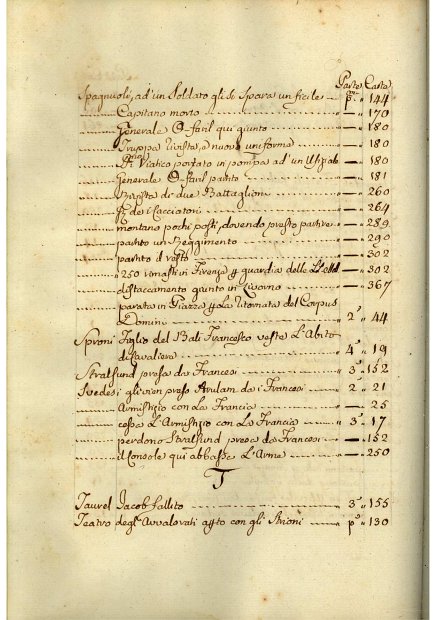 Parte Carta
Spagnuoli, ad'un Soldato gli si spara un fucile p.ª 144
Capitano morto — 170
Generale O-faril qui giunto — 180
Truppa vestita, a nuova uniforma — 180
Viatico portato in pompa ad'un — 180
Generale O-faril partito — 181
Rivista di due Battaglioni — 260
de i Cacciatori — 264
montano pochi posti, dovendo presto partire — 289
partito un Reggimento — 290
partito il resto — 302
250 rimasti in Firenze guardia della — 302
distaccamento giunto in Livorno — 367
parata in Piazza la ritornata del Corpus
Domini 2ª 44
Sproni Figlio del Balì Francesco veste L'Abito
di Cavaliere 4ª 19
Stralsund presa da Francesi 3ª 152
Svedesi gli vien preso Anclam da i Francesi 2ª 21
Armistizio con La Francia — 25
cessa L'Armistizio con La Francia 3ª 17
perdono Stralsund presa da Francesi — 152
il Console qui abbassa L'Arme — 250
T
Taurel Jacob fallito 3ª 155
Teatro degl'Avvalorati con gli Strioni p.ª 130